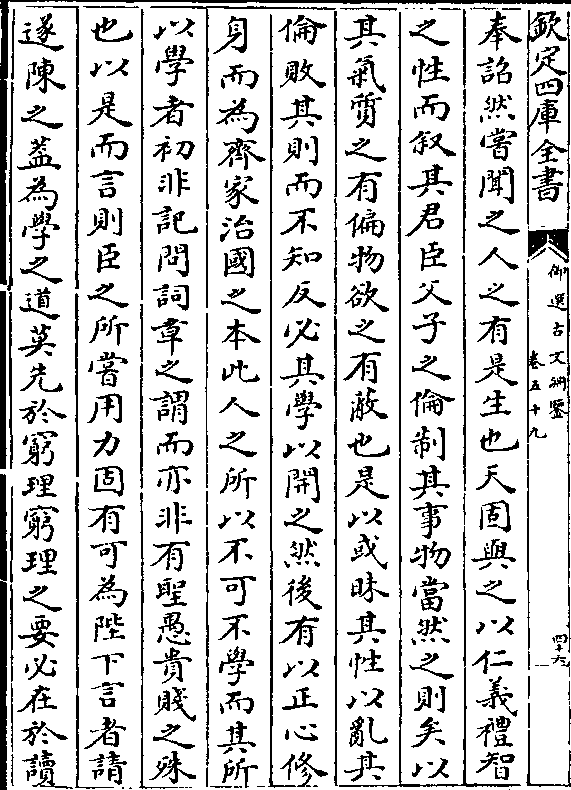 欽定四庫全書
御選古文淵鑒
卷五十九
四十六
奉詔然嘗聞之人之有是生也天固與之以仁義禮智
之性而叙其君臣父子之倫制其事物當然之則矣以
其氣質之有偏物欲之有蔽也是以或昧其性以亂其
倫敗其則而不知反必其學以開之然後有以正心修
身而為齊家治國之本此人之所以不可不學而其所
以學者初非記問詞章之謂而亦非有聖愚貴賤之殊
也以是而言則臣之所嘗用力固有可為陛下言者請
遂陳之葢為學之道莫先於窮理窮理之要必在於讀